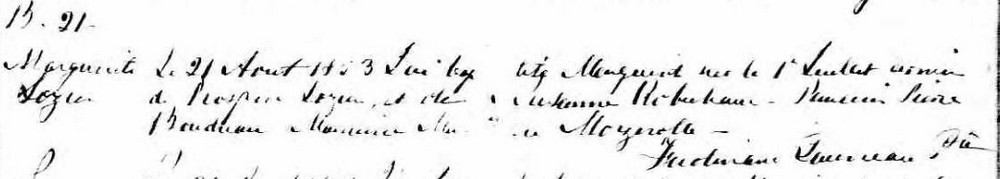 B. 21.
Marguerite Le 21 Aout 1853 J'ai bap tisé Marguerite née le 1er Juillet dernier
Lozier de Prosper Lozier, et de Susanne Robichaux - Parrain Pierre
Boudreau Marraine Mazerolle -
Ferdinand Gauvreau Ptre